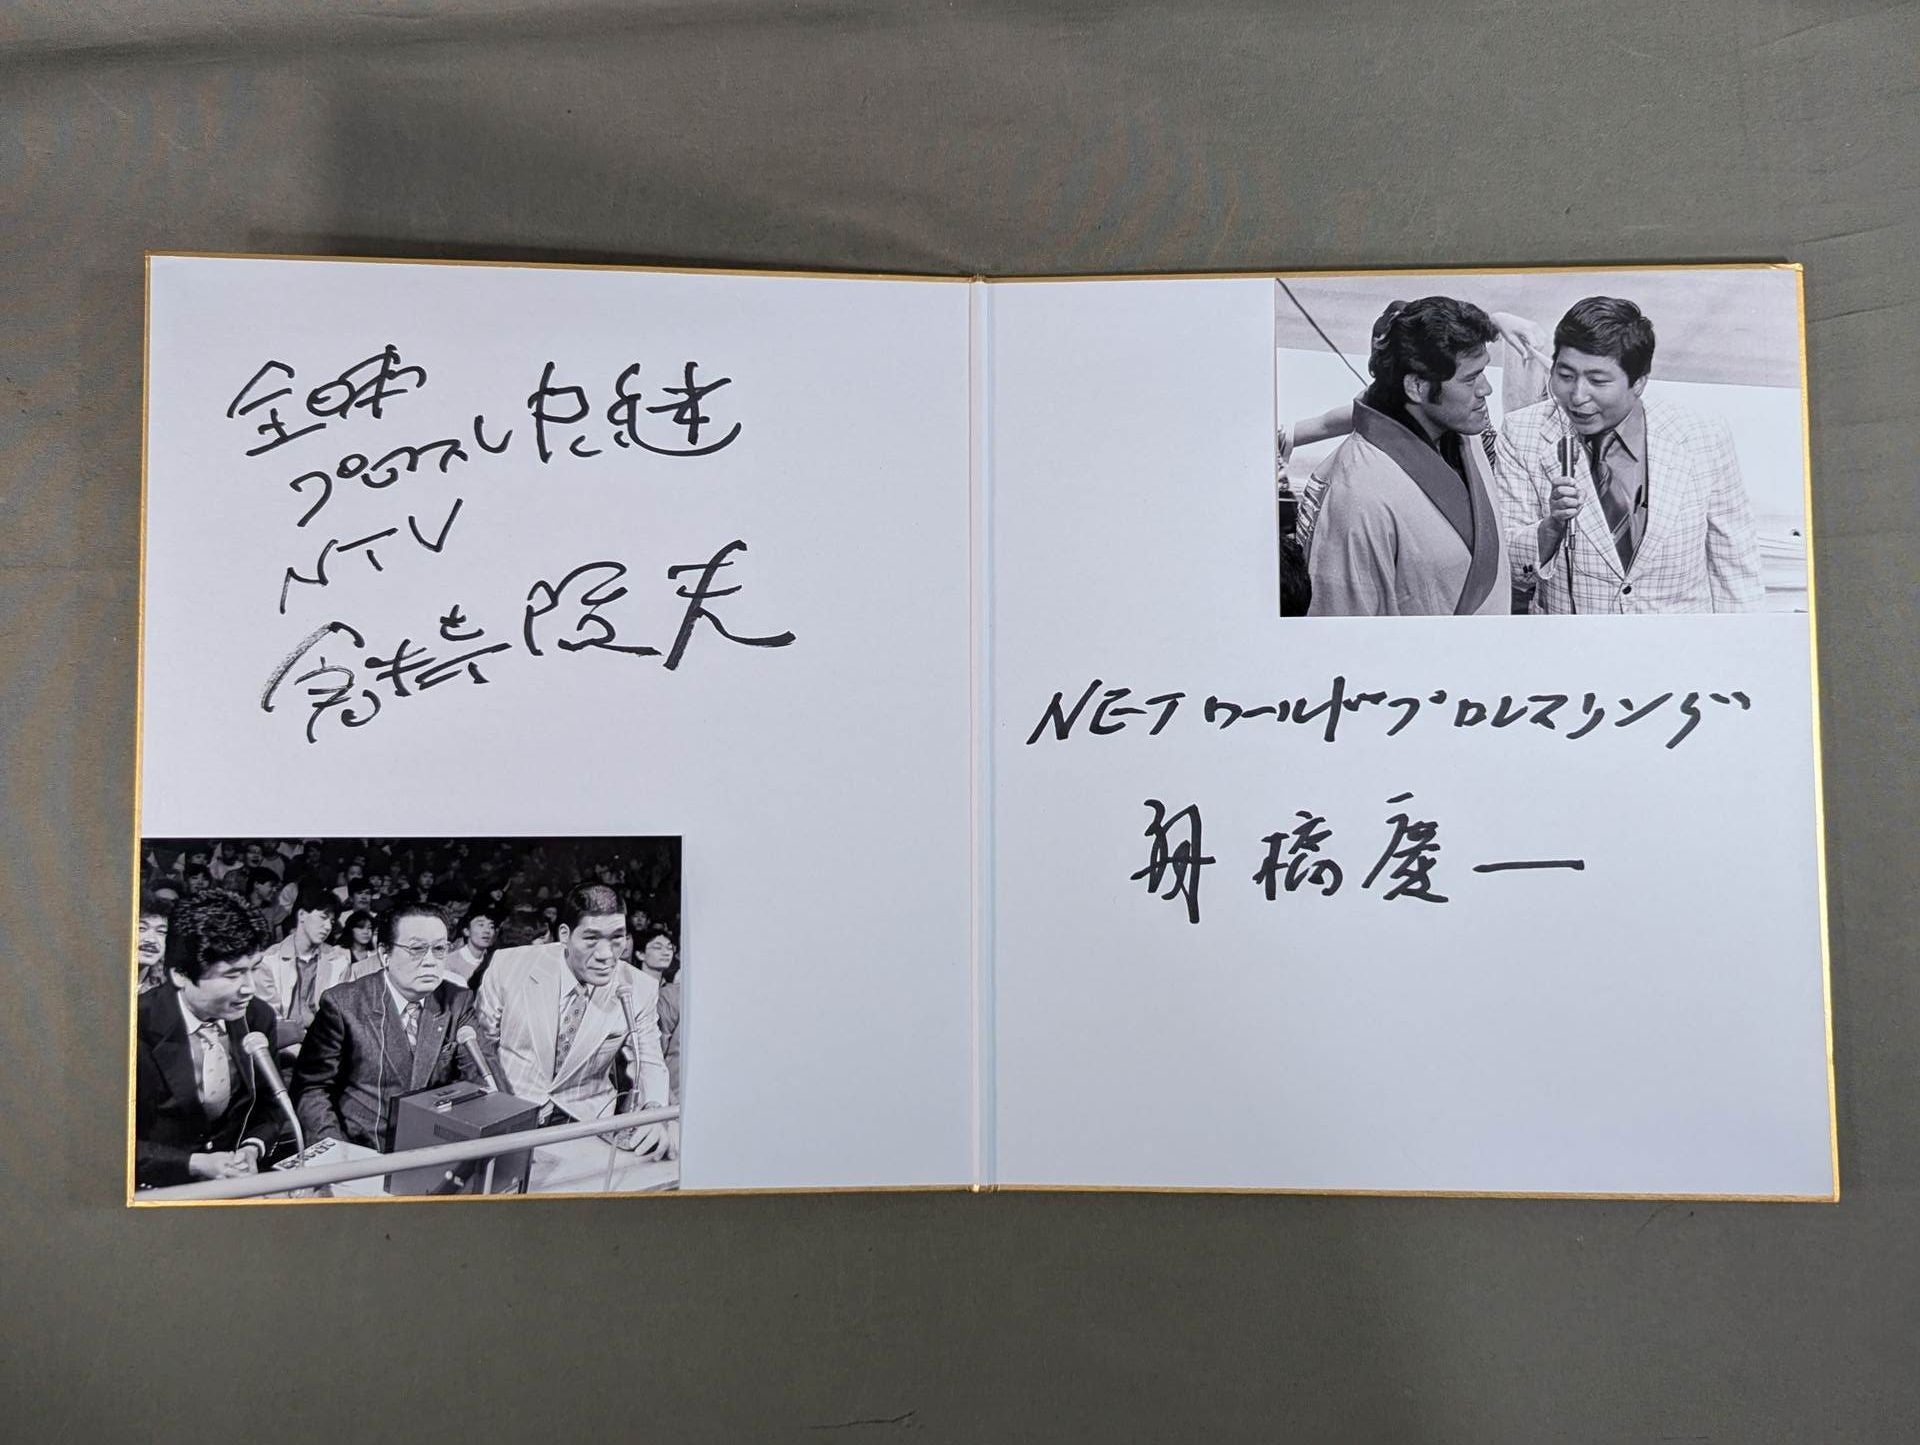 全日本
プロレス中継
NTV
倉持隆夫
NETワールドプロレスリング
舟橋慶一